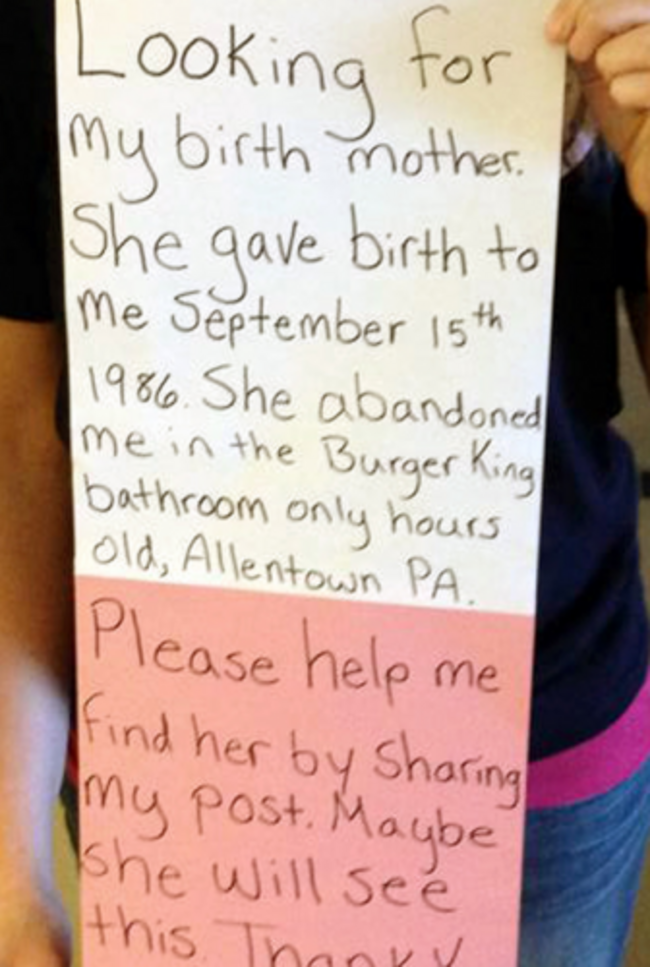 Looking for
my birth mother.
She gave birth to
me September 15th
1986. She abandoned
me in the Burger King
bathroom only hours
old, Allentown PA.
Please help me
find her by sharing
my post. Maybe
she will see
this.